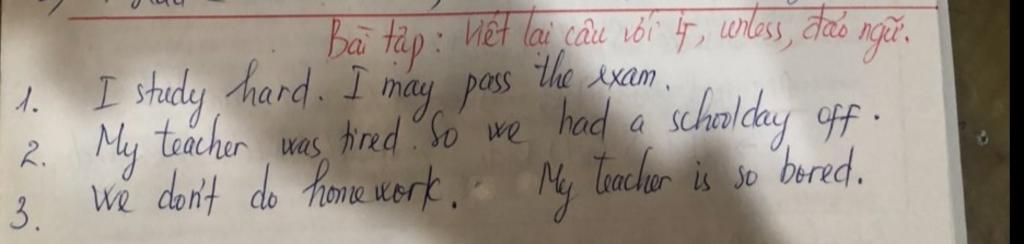 Bài tập: Viết lại câu với if, unless, đảo ngữ.
1. I study hard. I may pass the exam.
2. My teacher was tired. So we had a schoolday off.
3. We don't do homework. My teacher is so bored.